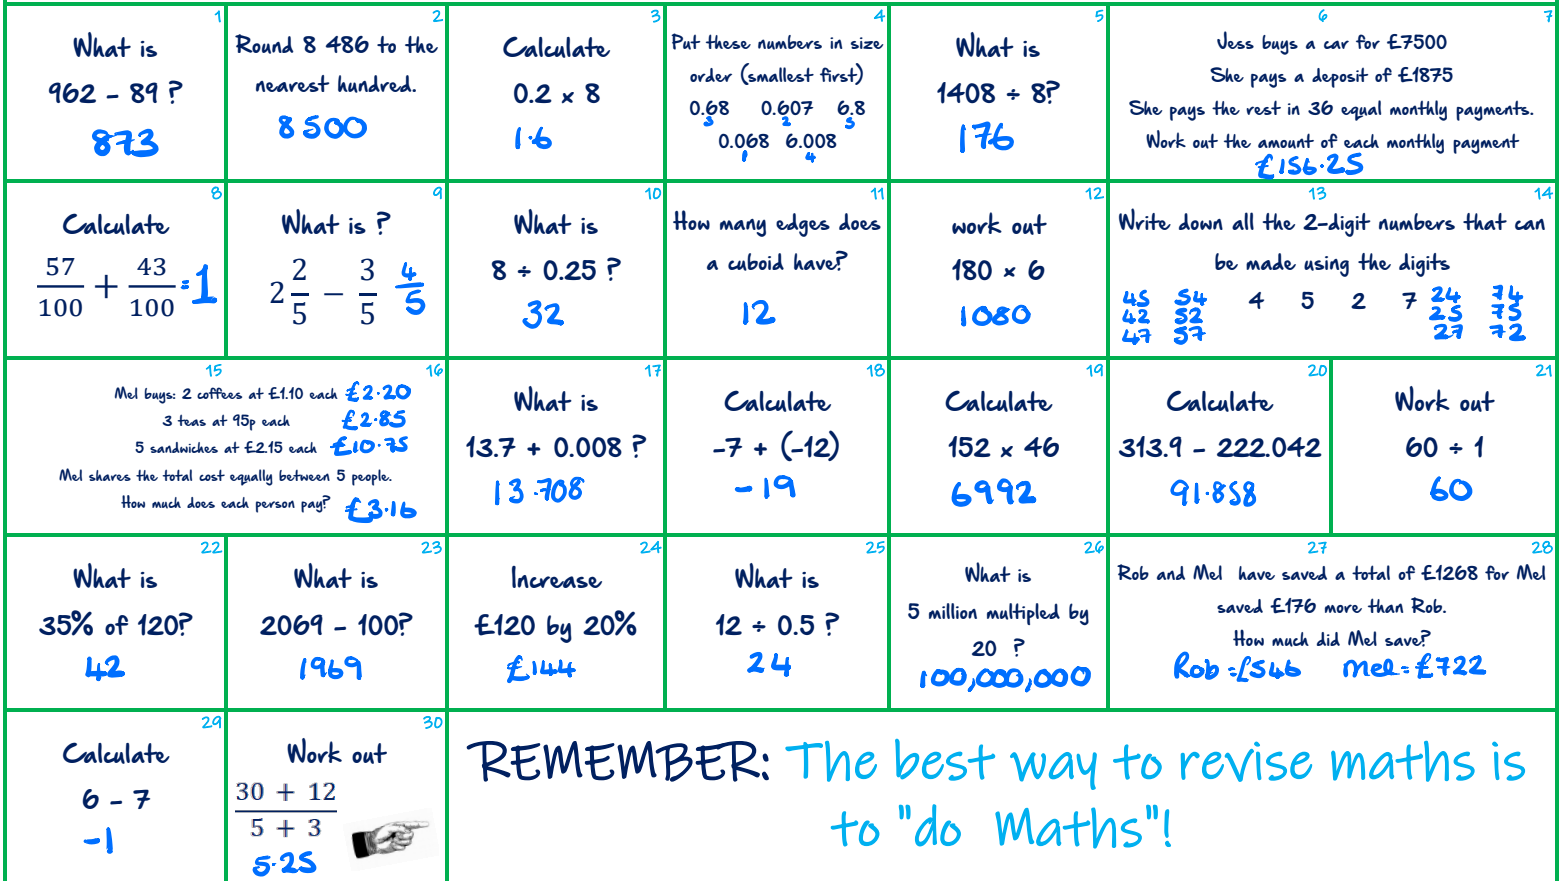 1
What is
962 - 89 ?
873
2
Round 8 486 to the
nearest hundred.
8500
3
Calculate
0.2 × 8
1.6
4
Put these numbers in size
order (smallest first)
0.68 0.607 6.8
3 2 5
0.068 6.008
1 4
5
What is
1408 ÷ 8?
176
6 7
Jess buys a car for £7500
She pays a deposit of £1875
She pays the rest in 36 equal monthly payments.
Work out the amount of each monthly payment
£156.25
8
Calculate
57/100 + 43/100 = 1
9
What is ?
2 2/5 − 3/5 4/5
10
What is
8 ÷ 0.25 ?
32
11
How many edges does
a cuboid have?
12
12
work out
180 × 6
1080
13 14
Write down all the 2-digit numbers that can
be made using the digits
4 5 2 7
45 54 24 74
42 52 25 75
47 57 27 72
15 16
Mel buys: 2 coffees at £1.10 each £2.20
3 teas at 95p each £2.85
5 sandwiches at £2.15 each £10.75
Mel shares the total cost equally between 5 people.
How much does each person pay? £3.16
17
What is
13.7 + 0.008 ?
13.708
18
Calculate
-7 + (-12)
-19
19
Calculate
152 × 46
6992
20
Calculate
313.9 - 222.042
91.858
21
Work out
60 ÷ 1
60
22
What is
35% of 120?
42
23
What is
2069 - 100?
1969
24
Increase
£120 by 20%
£144
25
What is
12 ÷ 0.5 ?
24
26
What is
5 million multipled by
20 ?
100,000,000
27 28
Rob and Mel have saved a total of £1268 for Mel
saved £176 more than Rob.
How much did Mel save?
Rob = £546 Mel = £722
29
Calculate
6 - 7
-1
30
Work out
30 + 12
5 + 3
5.25
REMEMBER: The best way to revise maths is
to "do Maths"!